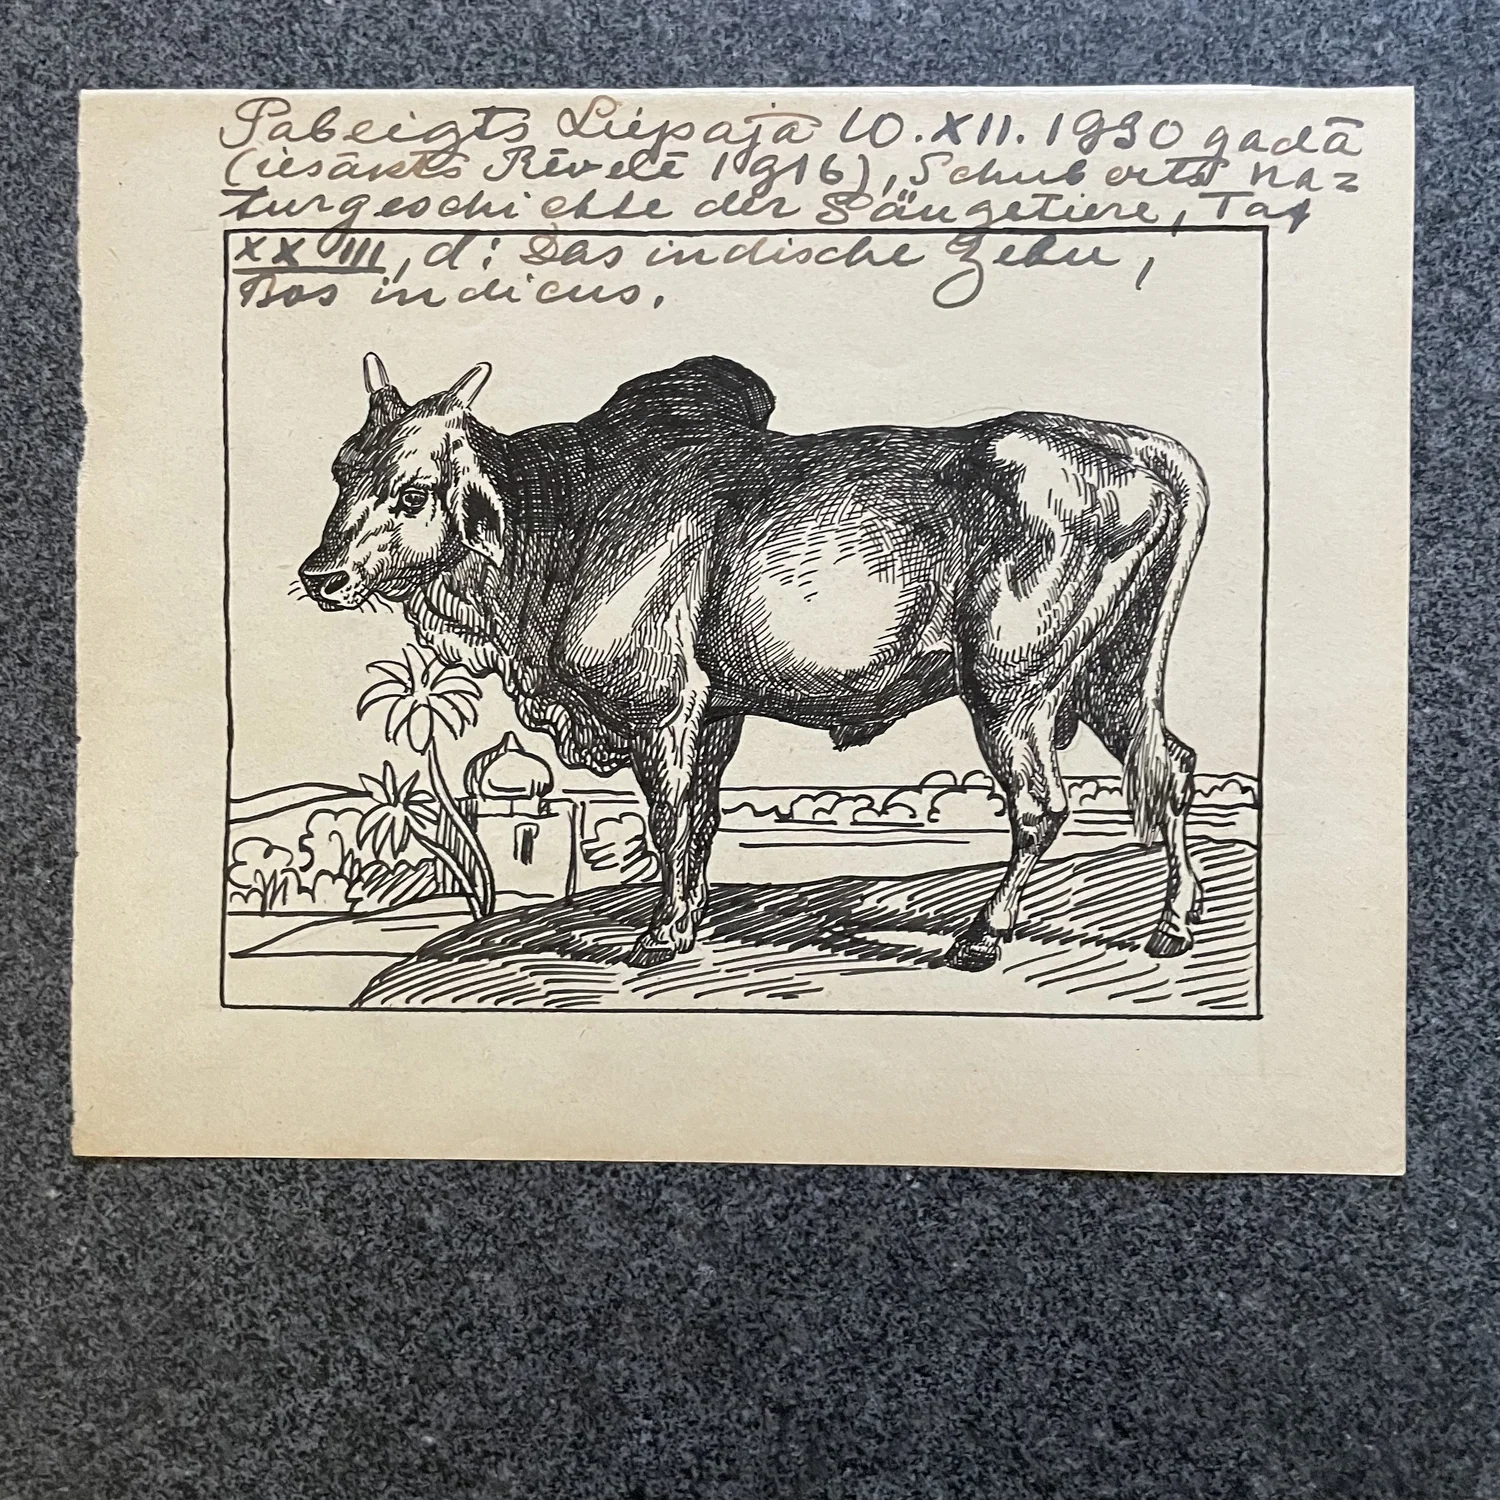 Pabeigts Liepājā 10.XII.1930 gadā
(iesākts Rēvelē 1916), Schuberts Na=
turgeschichte der Säugetiere, Taf
XXIII, d: Das indische Zebu,
Bos indicus.